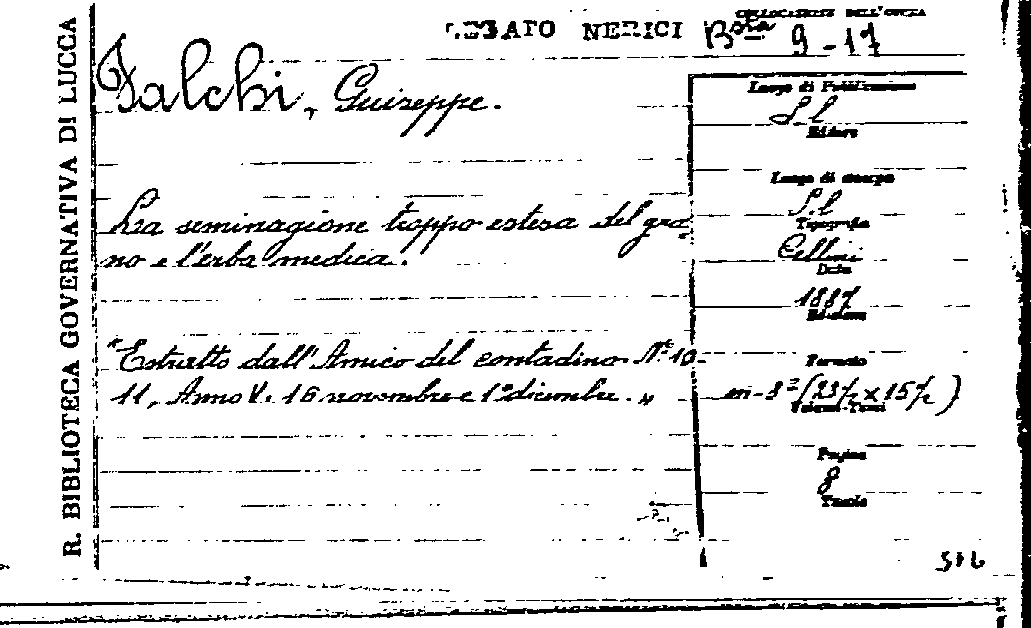 R. BIBLIOTECA GOVERNATIVA DI LUCCA
LEGATO NERICI
COLLOCAZIONE DELL'OPERA
Bsta 9-17
Falchi, Guiseppe.
La seminagione troppo estesa del gra-
no e l'erba medica.
"Estratto dall'Amico del contadino. N.° 10-
11, Anno V. 16 novembre e 1° dicembre."
Luogo di Pubblicazione
S.l
Editore
Luogo di stampa
S.l
Tipografia
Cellini
Data
1887
Edizione
Formato
in-8° (23½ x 15½)
Volumi-Tomi
Pagine
8
Tavole